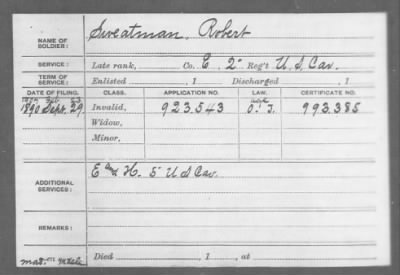 NAME OF SOLDIER: Sweatman, Robert
SERVICE: Late rank, Co. E. 2" Reg't U. S. Cav.
TERM OF SERVICE: Enlisted , 1 Discharged , 1
DATE OF FILING. CLASS. APPLICATION NO. LAW. CERTIFICATE NO.
1890 Sept. 29 Invalid, 923.543 993.385
Widow,
Minor,
ADDITIONAL SERVICES: E and H. 5" U S Cav.
REMARKS:
Died , 1 , at